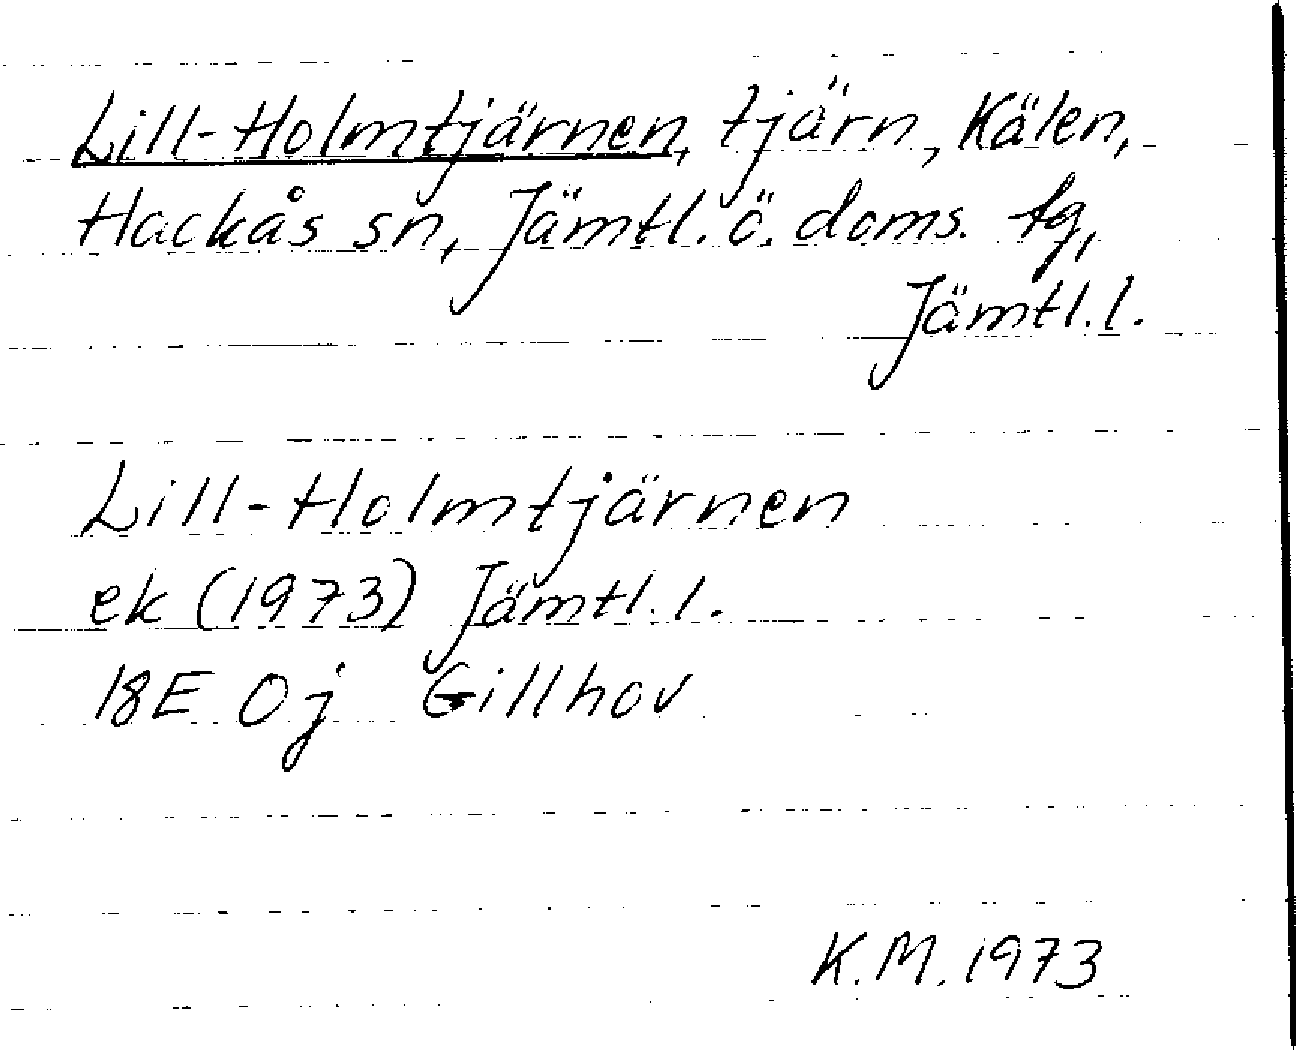 Lill-Holmtjärnen, tjärn, Kälen,
Hackås sn, Jämtl. ö. doms. tg,
Jämtl. l.
Lill-Holmtjärnen
ek (1973) Jämtl. l.
18E 0j Gillhov
K.M. 1973